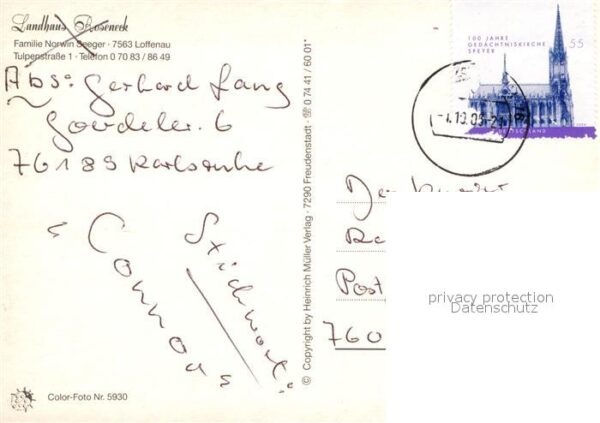 Landhaus Roseneck
Familie Norwin Seeger · 7563 Loffenau
Tulpenstraße 1 · Telefon 0 70 83 / 86 49
Abs: Gerhard Lang
Goerdeler. 6
76189 Karlsruhe
Stichwort:
"Connous"
Color-Foto Nr. 5930
© Copyright by Heinrich Müller Verlag · 7290 Freudenstadt · ☏ 0 74 41 / 60 01*
100 JAHRE
GEDÄCHTNISKIRCHE
SPEYER
55
DEUTSCHLAND
Der
Post
760
privacy protection
Datenschutz